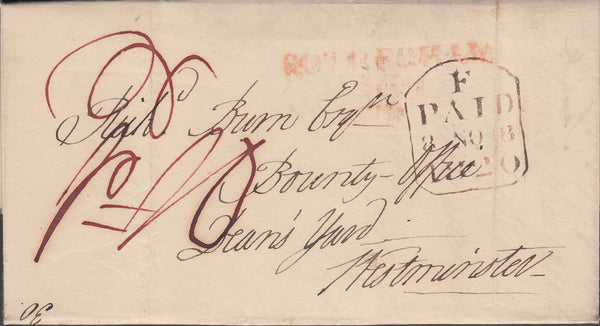 ROTHERHAM
F
PAID
8 NO 8
1820
Richd Burn Esqr
Bounty-Office
Dean's Yard
Westminster